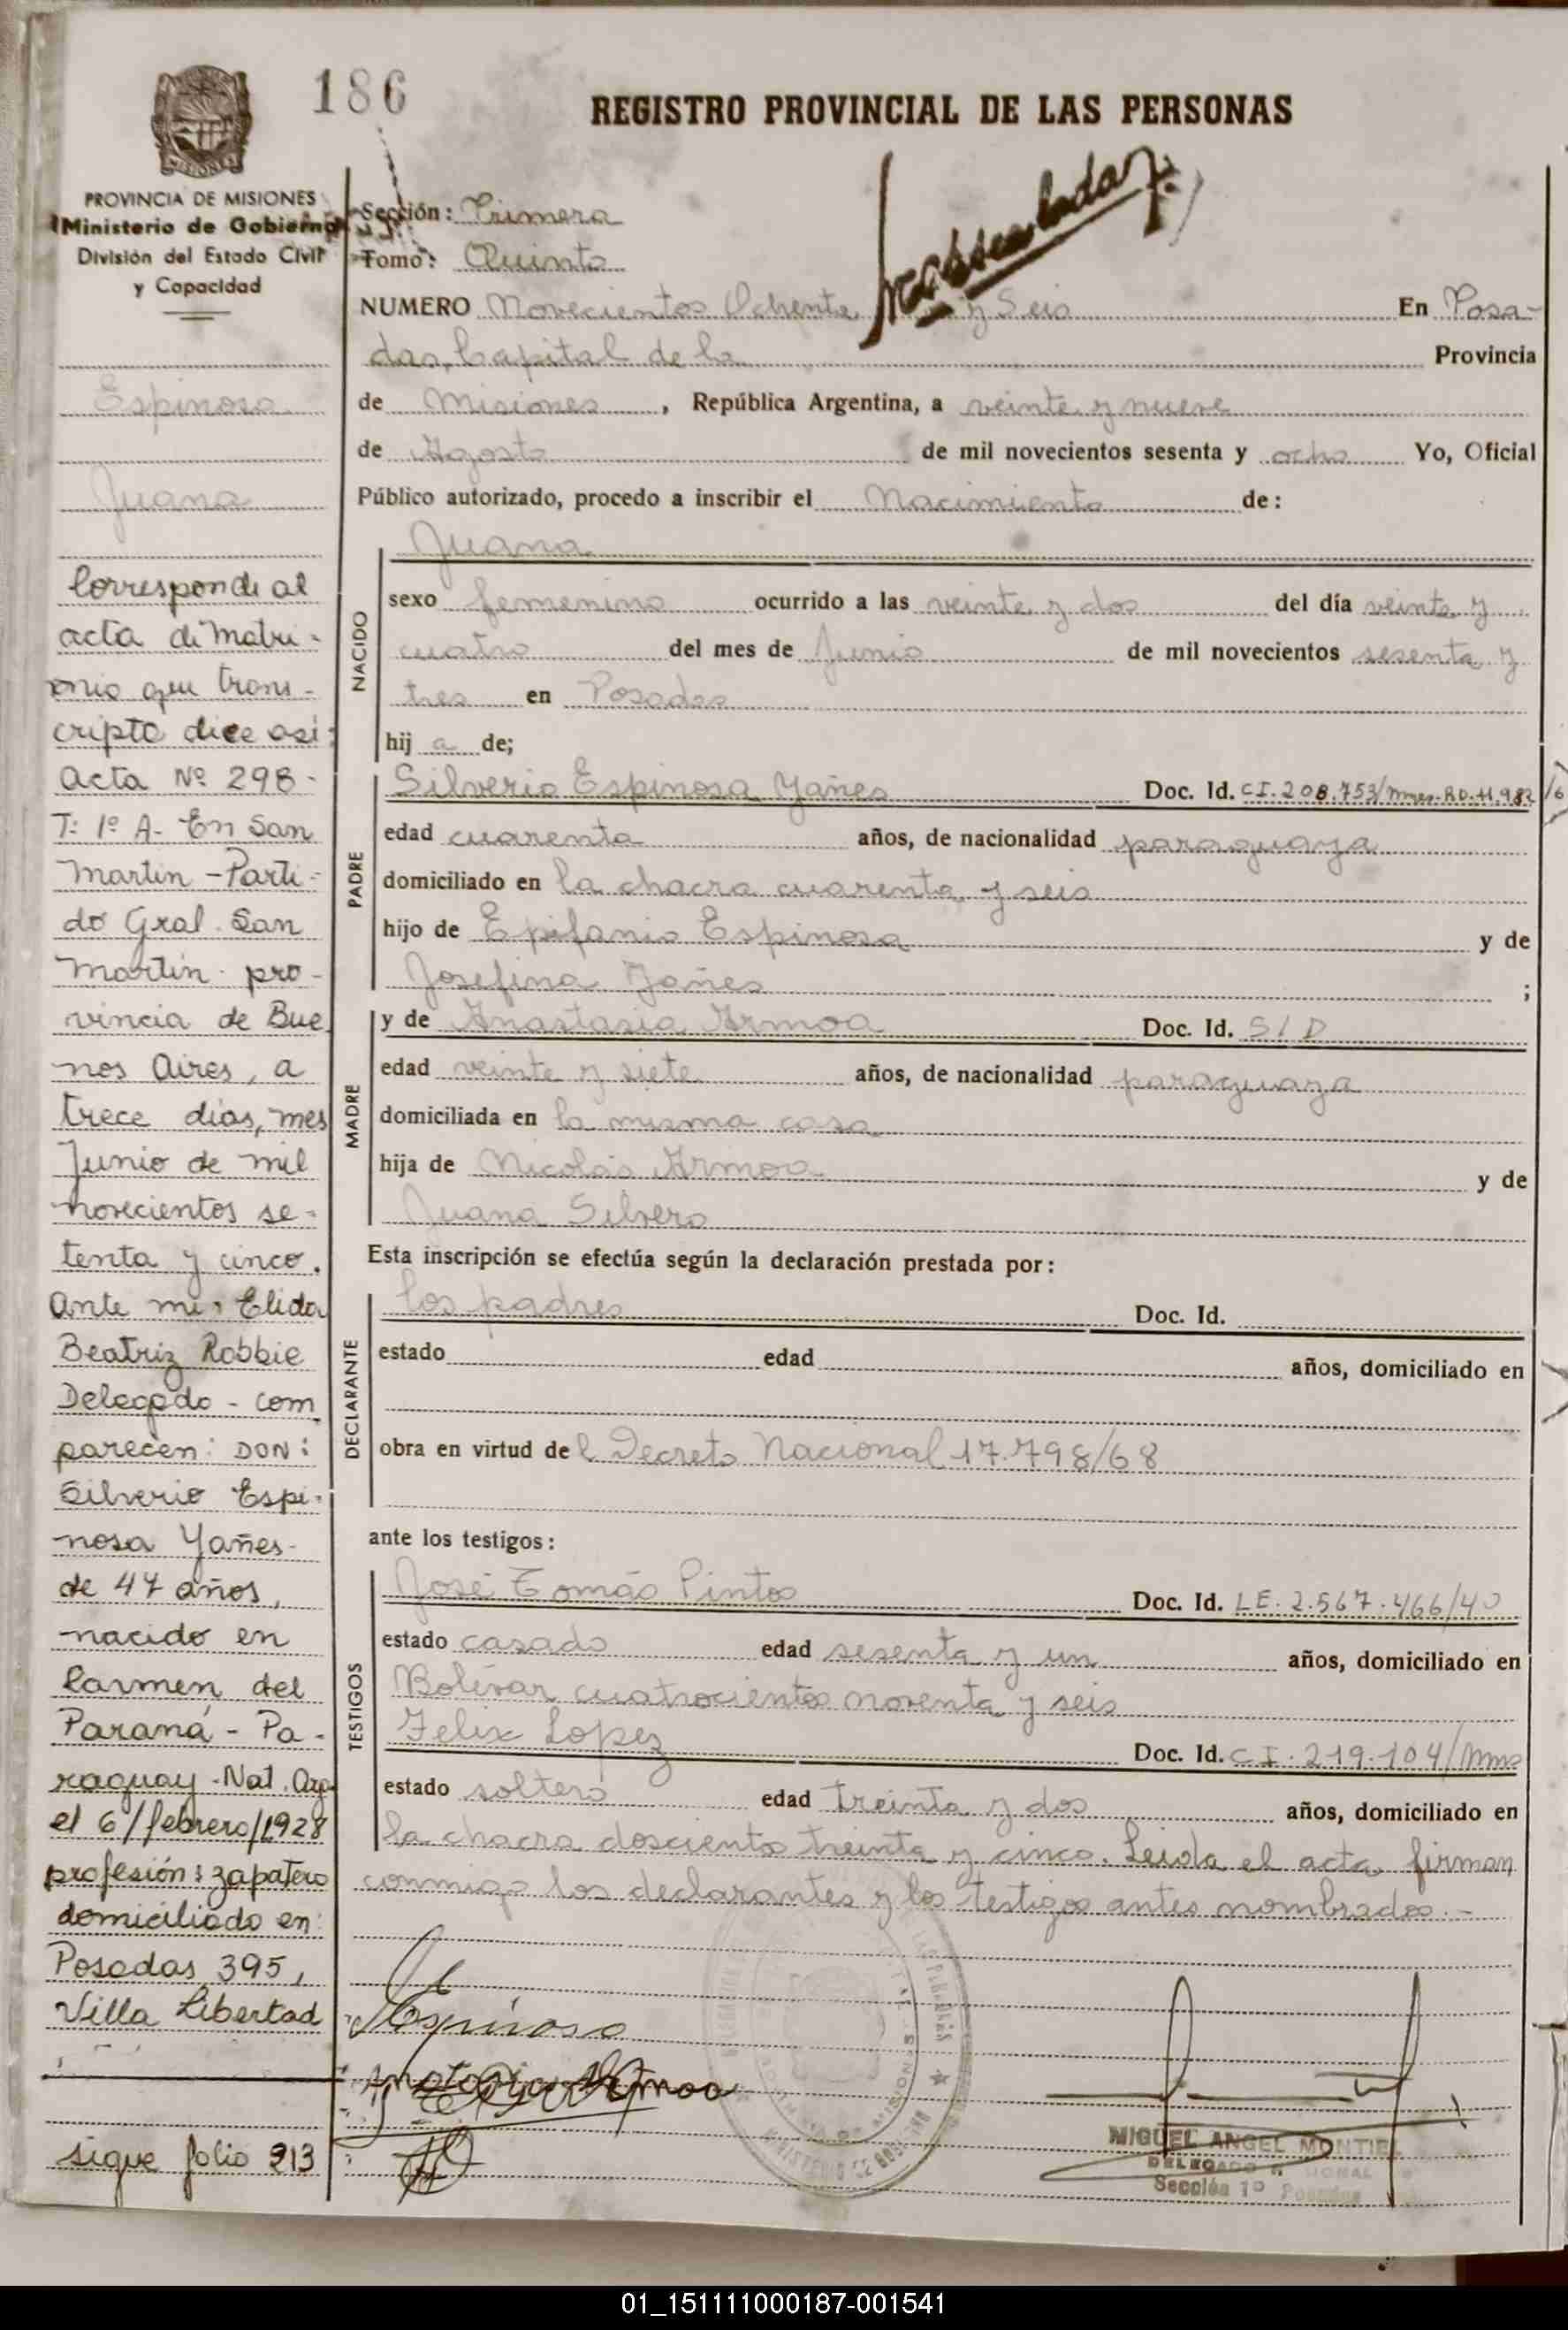 186
REGISTRO PROVINCIAL DE LAS PERSONAS
MISIONES
PROVINCIA DE MISIONES
Ministerio de Gobierno
División del Estado Civil
y Capacidad
Espinosa
Juana
Corresponde al
acta de Matri-
onio que trans-
cripto dice asi:
Acta Nº 298-
T: 1º A- En San
Martin - Parti-
do Gral. San
Martin - pro-
vincia de Bue
nos Aires, a
trece dias, mes
Junio de mil
novecientos se-
tenta y cinco.
Ante mi, Elida
Beatriz Robbie
Delegado - com
parecen: DON:
Silverio Espi-
nosa Yañes-
de 47 años,
nacido en
Carmen del
Paraná - Pa-
raguay - Nat. Arg.
el 6/febrero/1928
profesión: zapatero
domiciliado en:
Posadas 395,
Villa Libertad
sigue folio 213
Sección: Primera
Tomo: Quinto
NUMERO Novecientos Ochenta y Seis En Posa-
das, Capital de la Provincia
de Misiones, República Argentina, a veinte y nueve
de Agosto de mil novecientos sesenta y ocho Yo, Oficial
Público autorizado, procedo a inscribir el Nacimiento de:
NACIDO
Juana
sexo femenino ocurrido a las veinte y dos del día veinte y
cuatro del mes de Junio de mil novecientos sesenta y
tres en Posadas
hij a de;
PADRE
Silverio Espinosa Yañes Doc. Id. CI. 208.753/Mnes-RD.41.982
edad cuarenta años, de nacionalidad paraguaya
domiciliado en la chacra cuarenta y seis
hijo de Epifanio Espinosa y de
Josefina Yañes ;
MADRE
y de Anastasia Armoa Doc. Id. S/D
edad veinte y siete años, de nacionalidad paraguaya
domiciliada en la misma casa
hija de Nicolás Armoa y de
Juana Silvero
Esta inscripción se efectúa según la declaración prestada por:
DECLARANTE
los padres Doc. Id.
estado edad años, domiciliado en
obra en virtud de l Decreto Nacional 17.798/68
ante los testigos:
TESTIGOS
José Tomás Pintos Doc. Id. LE. 2.567.466/40
estado casado edad sesenta y un años, domiciliado en
Bolívar cuatrocientos noventa y seis
Felix Lopez Doc. Id. CI. 219.104/Mnes
estado soltero edad treinta y dos años, domiciliado en
la chacra doscientos treinta y cinco. Leida el acta, firman
conmigo los declarantes y los testigos antes nombrados.-
SEspinosa
MIGUEL ANGEL MONTIEL
Sección 1º Posadas
01_151111000187-001541